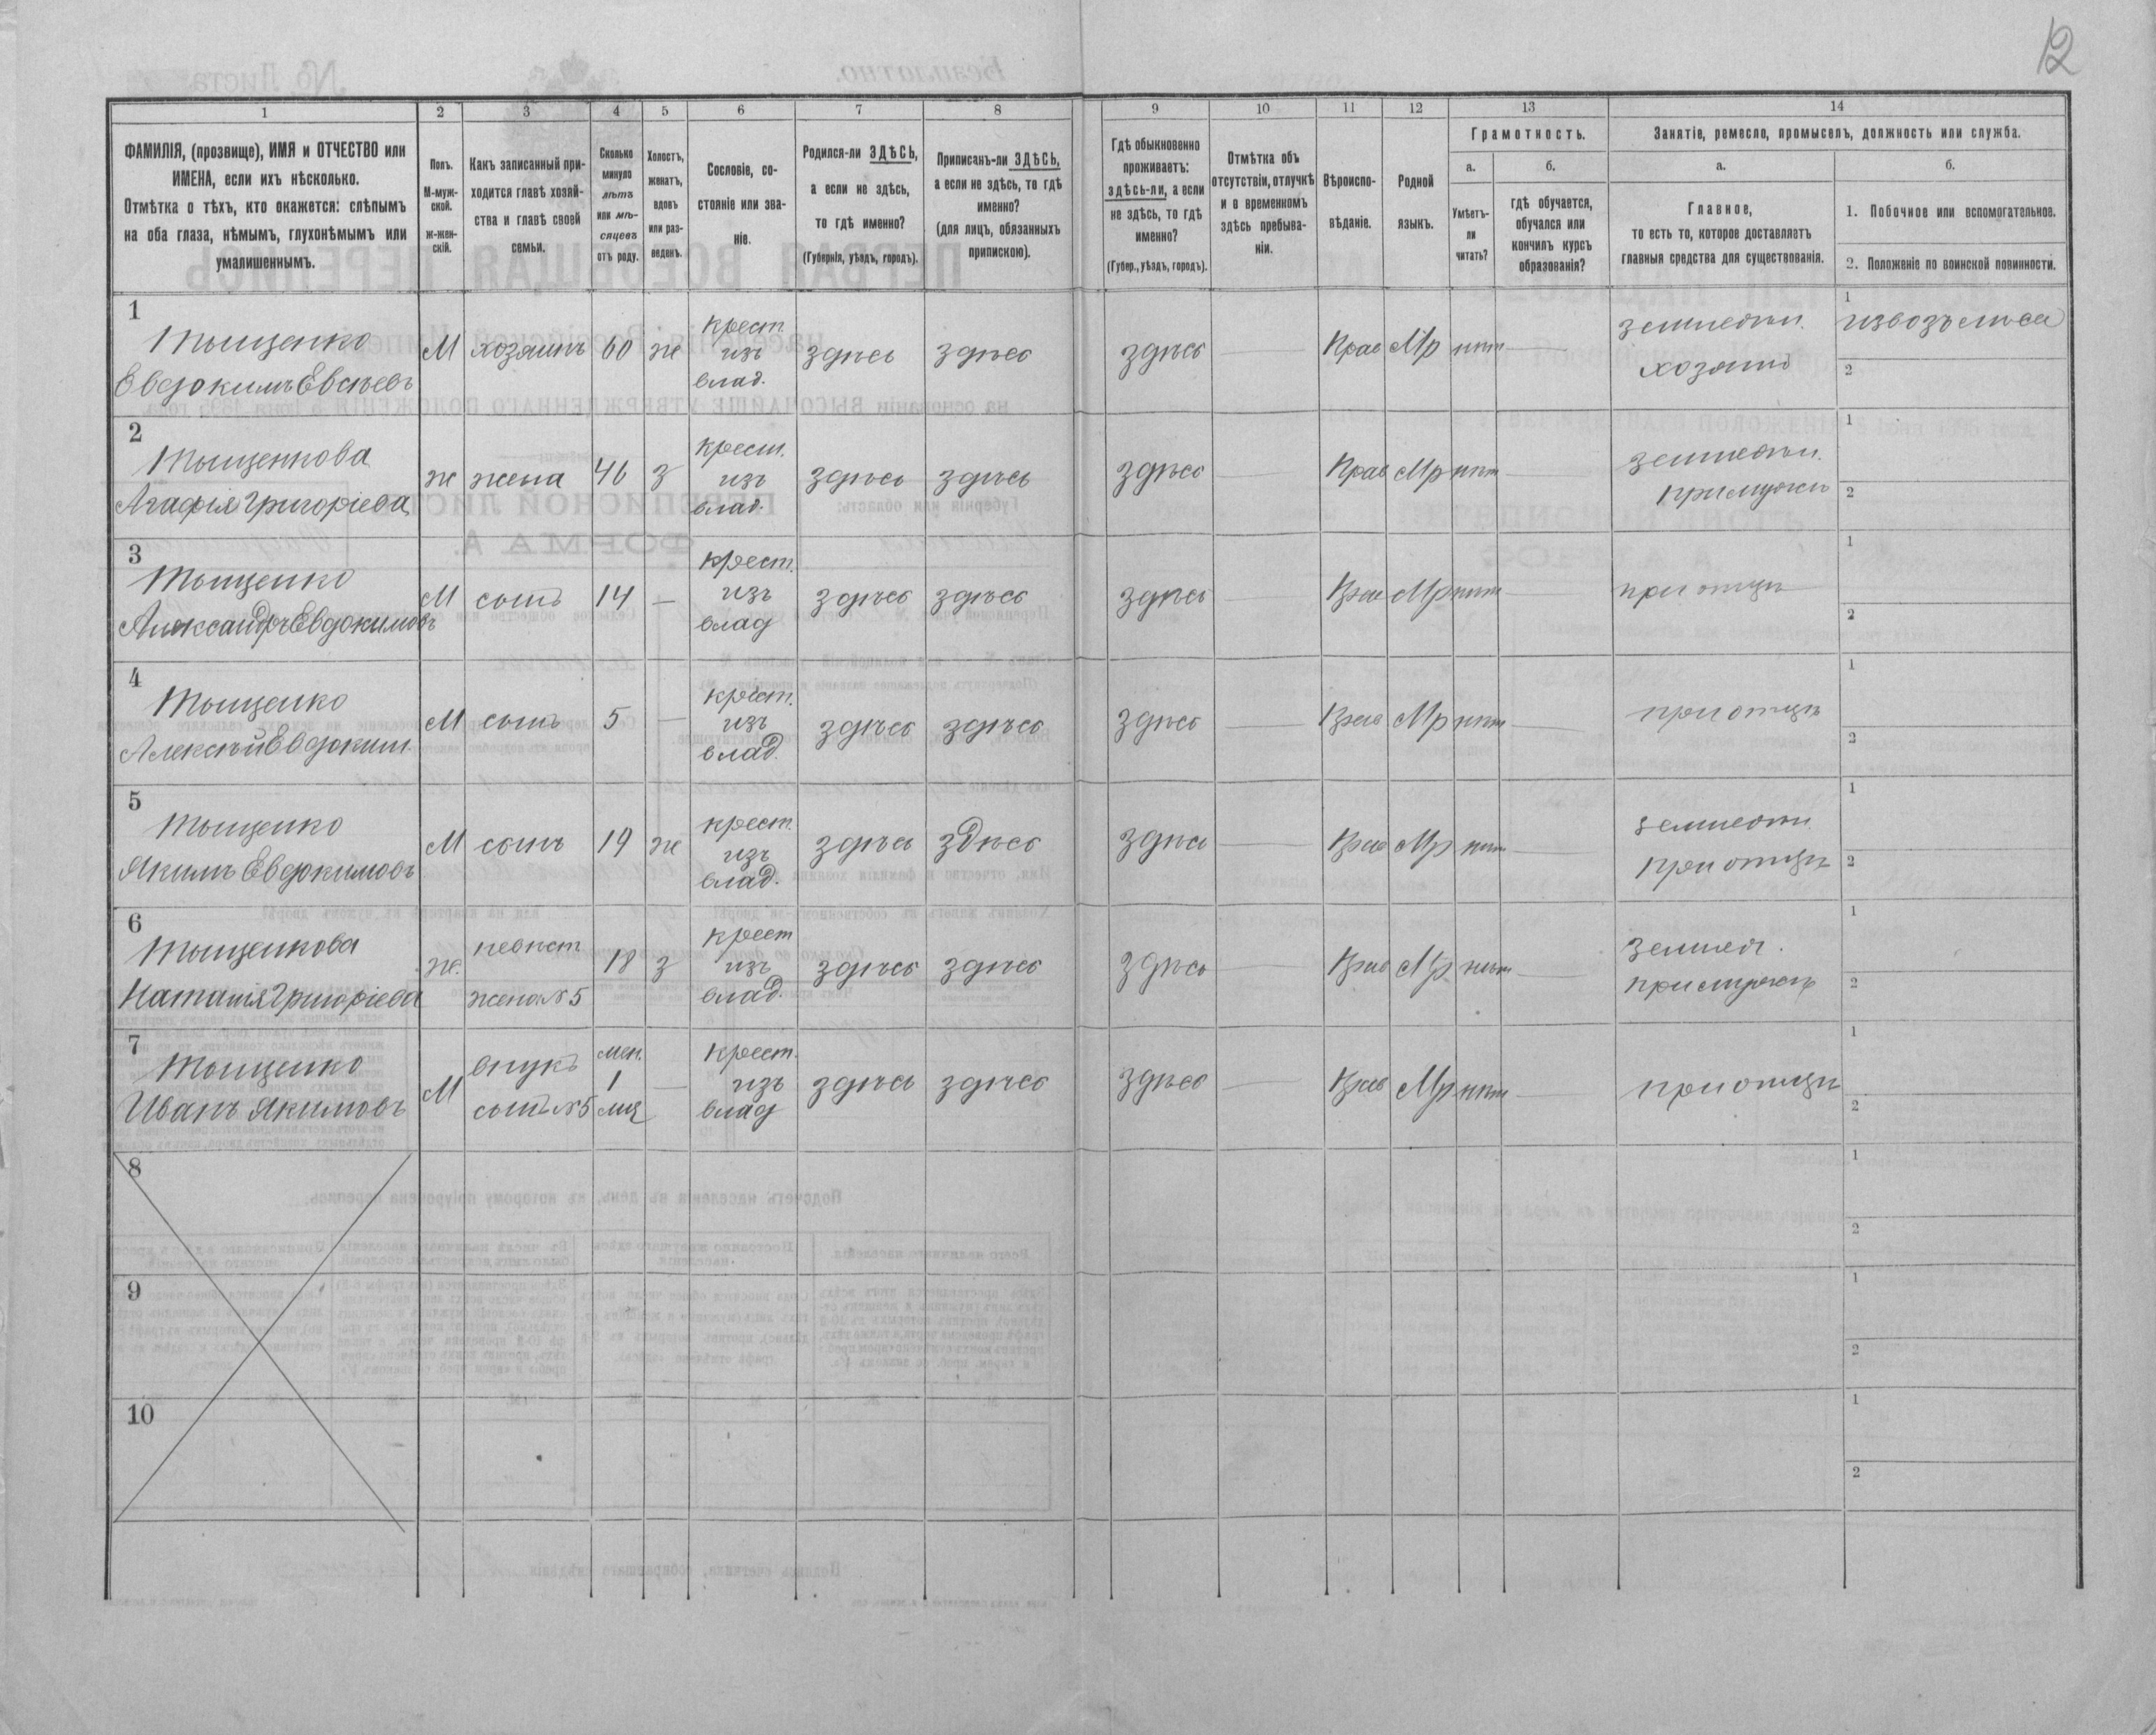 12
1 2 3 4 5 6 7 8 9 10 11 12 13 14
ФАМИЛІЯ, (прозвище), ИМЯ и ОТЧЕСТВО или
ИМЕНА, если ихъ нѣсколько.
Отмѣтка о тѣхъ, кто окажется: слѣпымъ
на оба глаза, нѣмымъ, глухонѣмымъ или
умалишеннымъ.
Полъ.
М-муж-
ской.
ж-жен-
скій.
Какъ записанный при-
ходится главѣ хозяй-
ства и главѣ своей
семьи.
Сколько
минуло
лѣтъ
или мѣ-
сяцевъ
отъ роду.
Холостъ,
женатъ,
вдовъ
или раз-
веденъ.
Сословіе, со-
стояніе или зва-
ніе.
Родился-ли ЗДѢСЬ,
а если не здѣсь,
то гдѣ именно?
(Губернія, уѣздъ, городъ).
Приписанъ-ли ЗДѢСЬ,
а если не здѣсь, то гдѣ
именно?
(для лицъ, обязанныхъ
припискою).
Гдѣ обыкновенно
проживаетъ:
здѣсь-ли, а если
не здѣсь, то гдѣ
именно?
(Губер., уѣздъ, городъ).
Отмѣтка объ
отсутствіи, отлучкѣ
и о временномъ
здѣсь пребыва-
ніи.
Вѣроиспо-
вѣданіе.
Родной
языкъ.
Грамотность.
а.
Умѣетъ-
ли
читать?
б.
гдѣ обучается,
обучался или
кончилъ курсъ
образованія?
Занятіе, ремесло, промыселъ, должность или служба.
а.
Главное,
то есть то, которое доставляетъ
главныя средства для существованія.
б.
1. Побочное или вспомогательное.
2. Положеніе по воинской повинности.
1
Тыщенко
Евдокимъ Евсѣевъ
М
хозяинъ
60
ж
крест.
изъ
влад.
здѣсь
здѣсь
здѣсь
Прав
Мр
нѣт
землед.
хозяинъ
1 извозъ лѣса
2
2
Тыщенкова
Агафія Григоріева
ж
жена
46
з
крест.
изъ
влад.
здѣсь
здѣсь
здѣсь
Прав
Мр
нѣт
землед.
при мужѣ
1
2
3
Тыщенко
Александръ Евдокимовъ
М
сынъ
14
—
крест.
изъ
влад
здѣсь
здѣсь
здѣсь
Прав
Мр
нѣт
при отцѣ
1
2
4
Тыщенко
Алексѣй Евдоким.
М
сынъ
5
—
крест.
изъ
влад.
здѣсь
здѣсь
здѣсь
Прав
Мр
нѣт
при отцѣ
1
2
5
Тыщенко
Якимъ Евдокимовъ
М
сынъ
19
ж
крест.
изъ
влад.
здѣсь
здѣсь
здѣсь
Прав
Мр
нѣт
землед.
при отцѣ
1
2
6
Тыщенкова
Наталія Григоріева
ж.
невѣст
жена №5
18
з
крест
изъ
влад.
здѣсь
здѣсь
здѣсь
Прав
Мр
нѣт
землед.
при мужѣ
1
2
7
Тыщенко
Иванъ Якимовъ
М
внукъ
сынъ №5
мен.
1
мѣс
—
крест.
изъ
влад
здѣсь
здѣсь
здѣсь
Прав
Мр
нѣт
при отцѣ
1
2
8
1
2
9
1
2
10
1
2